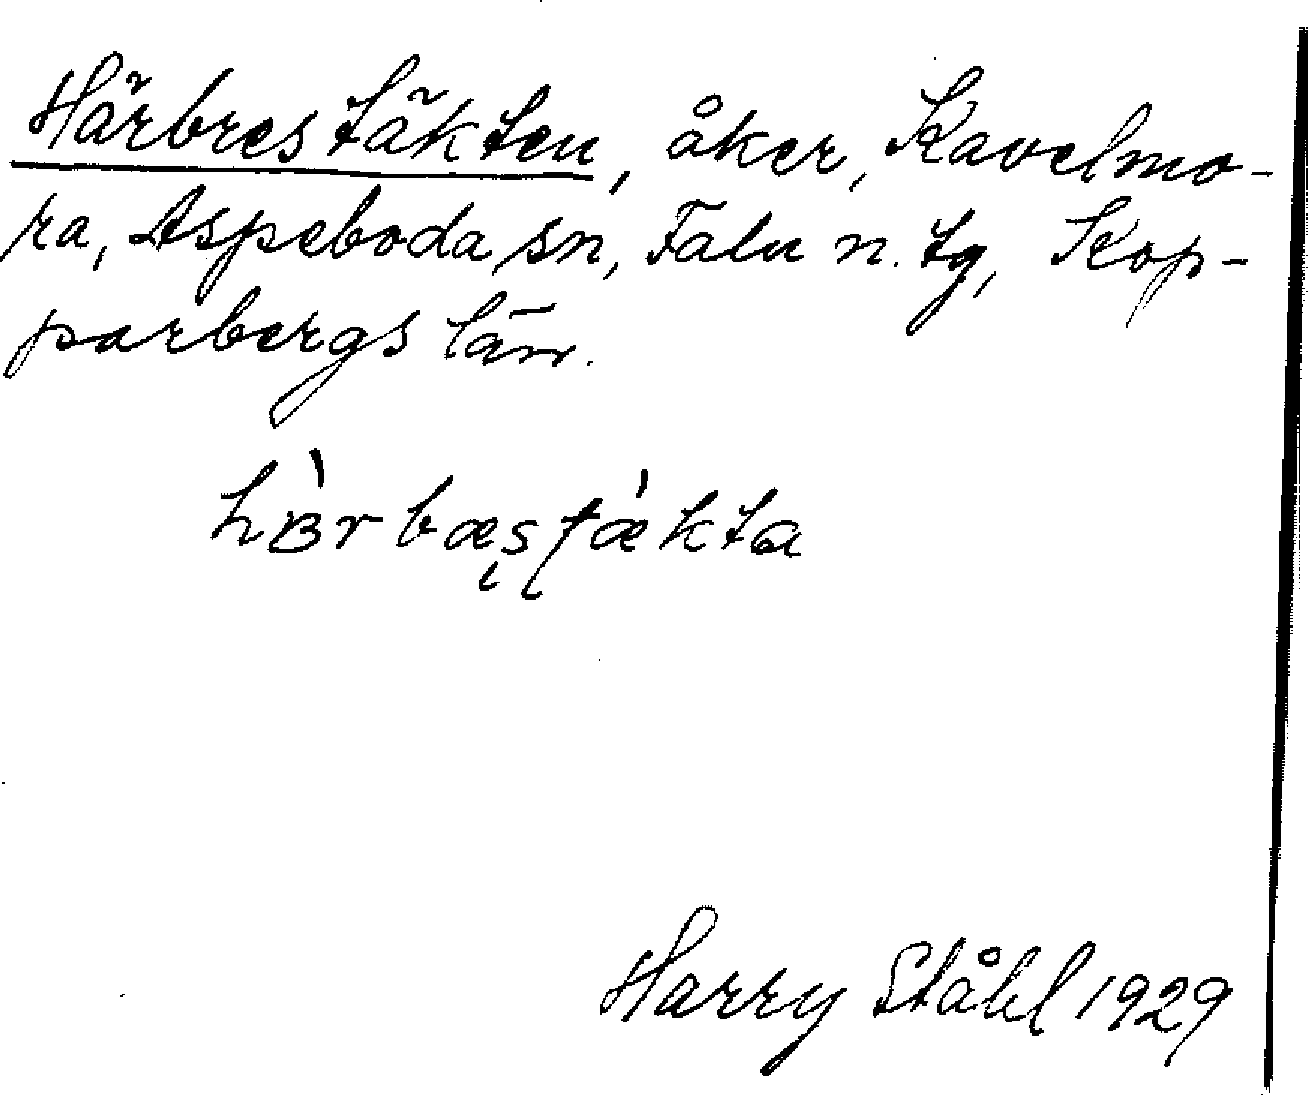 Härbrestäkten, åker, Kavelmo-
ra, Aspeboda sn, Falu n. tg, Kop-
parbergs län.
hɜ̀rbæʂʈǽkta
Harry Ståhl 1929